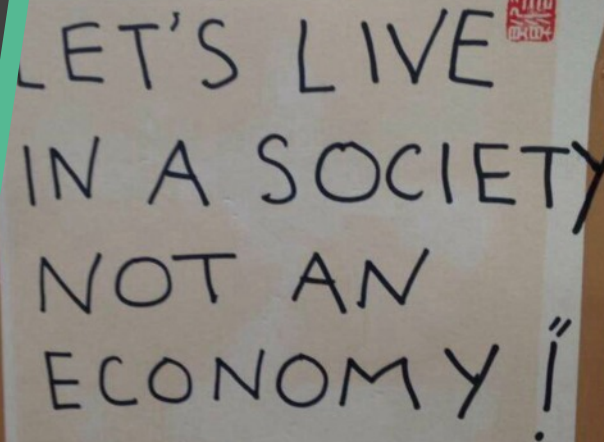 LET'S LIVE
IN A SOCIETY
NOT AN
ECONOMY!"